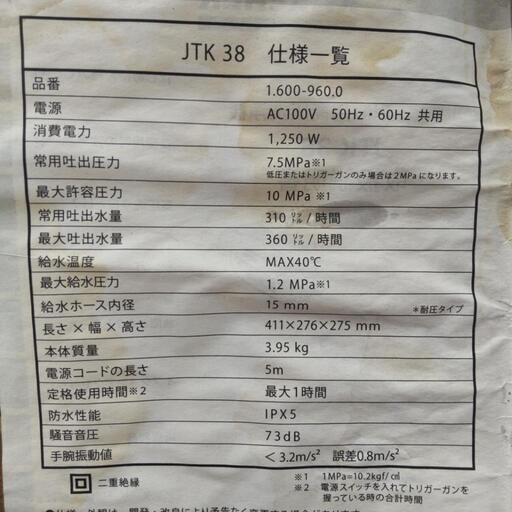 JTK 38 仕様一覧
品番 1.600-960.0
電源 AC100V 50Hz・60Hz 共用
消費電力 1,250 W
常用吐出圧力 7.5MPa※1
低圧またはトリガーガンのみ場合は2MPaになります。
最大許容圧力 10 MPa ※1
常用吐出水量 310 ㍑/時間
最大吐出水量 360 ㍑/時間
給水温度 MAX40℃
最大給水圧力 1.2 MPa※1
給水ホース内径 15 mm *耐圧タイプ
長さ×幅×高さ 411×276×275 mm
本体質量 3.95 kg
電源コードの長さ 5m
定格使用時間※2 最大1時間
防水性能 IPX5
騒音音圧 73dB
手腕振動値 <3.2m/s² 誤差0.8m/s²
二重絶縁 ※1 1MPa=10.2kgf/㎠
※2 電源スイッチを入れてトリガーガンを
握っている時の合計時間